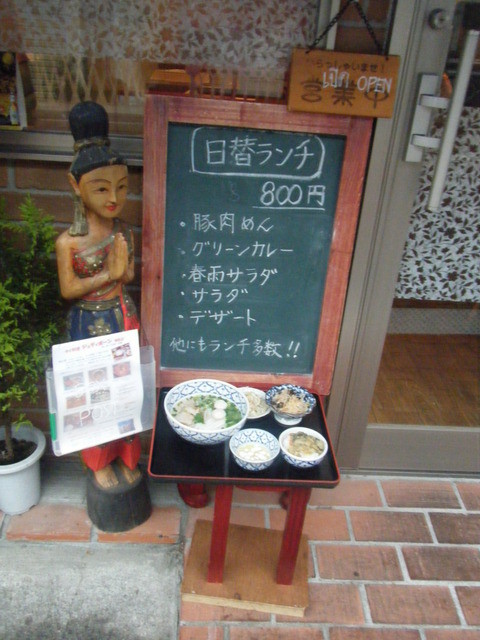 いらっしゃいませ!
OPEN
営業中
日替ランチ
800円
・豚肉めん
・グリーンカレー
・春雨サラダ
・サラダ
・デザート
他にもランチ多数!!